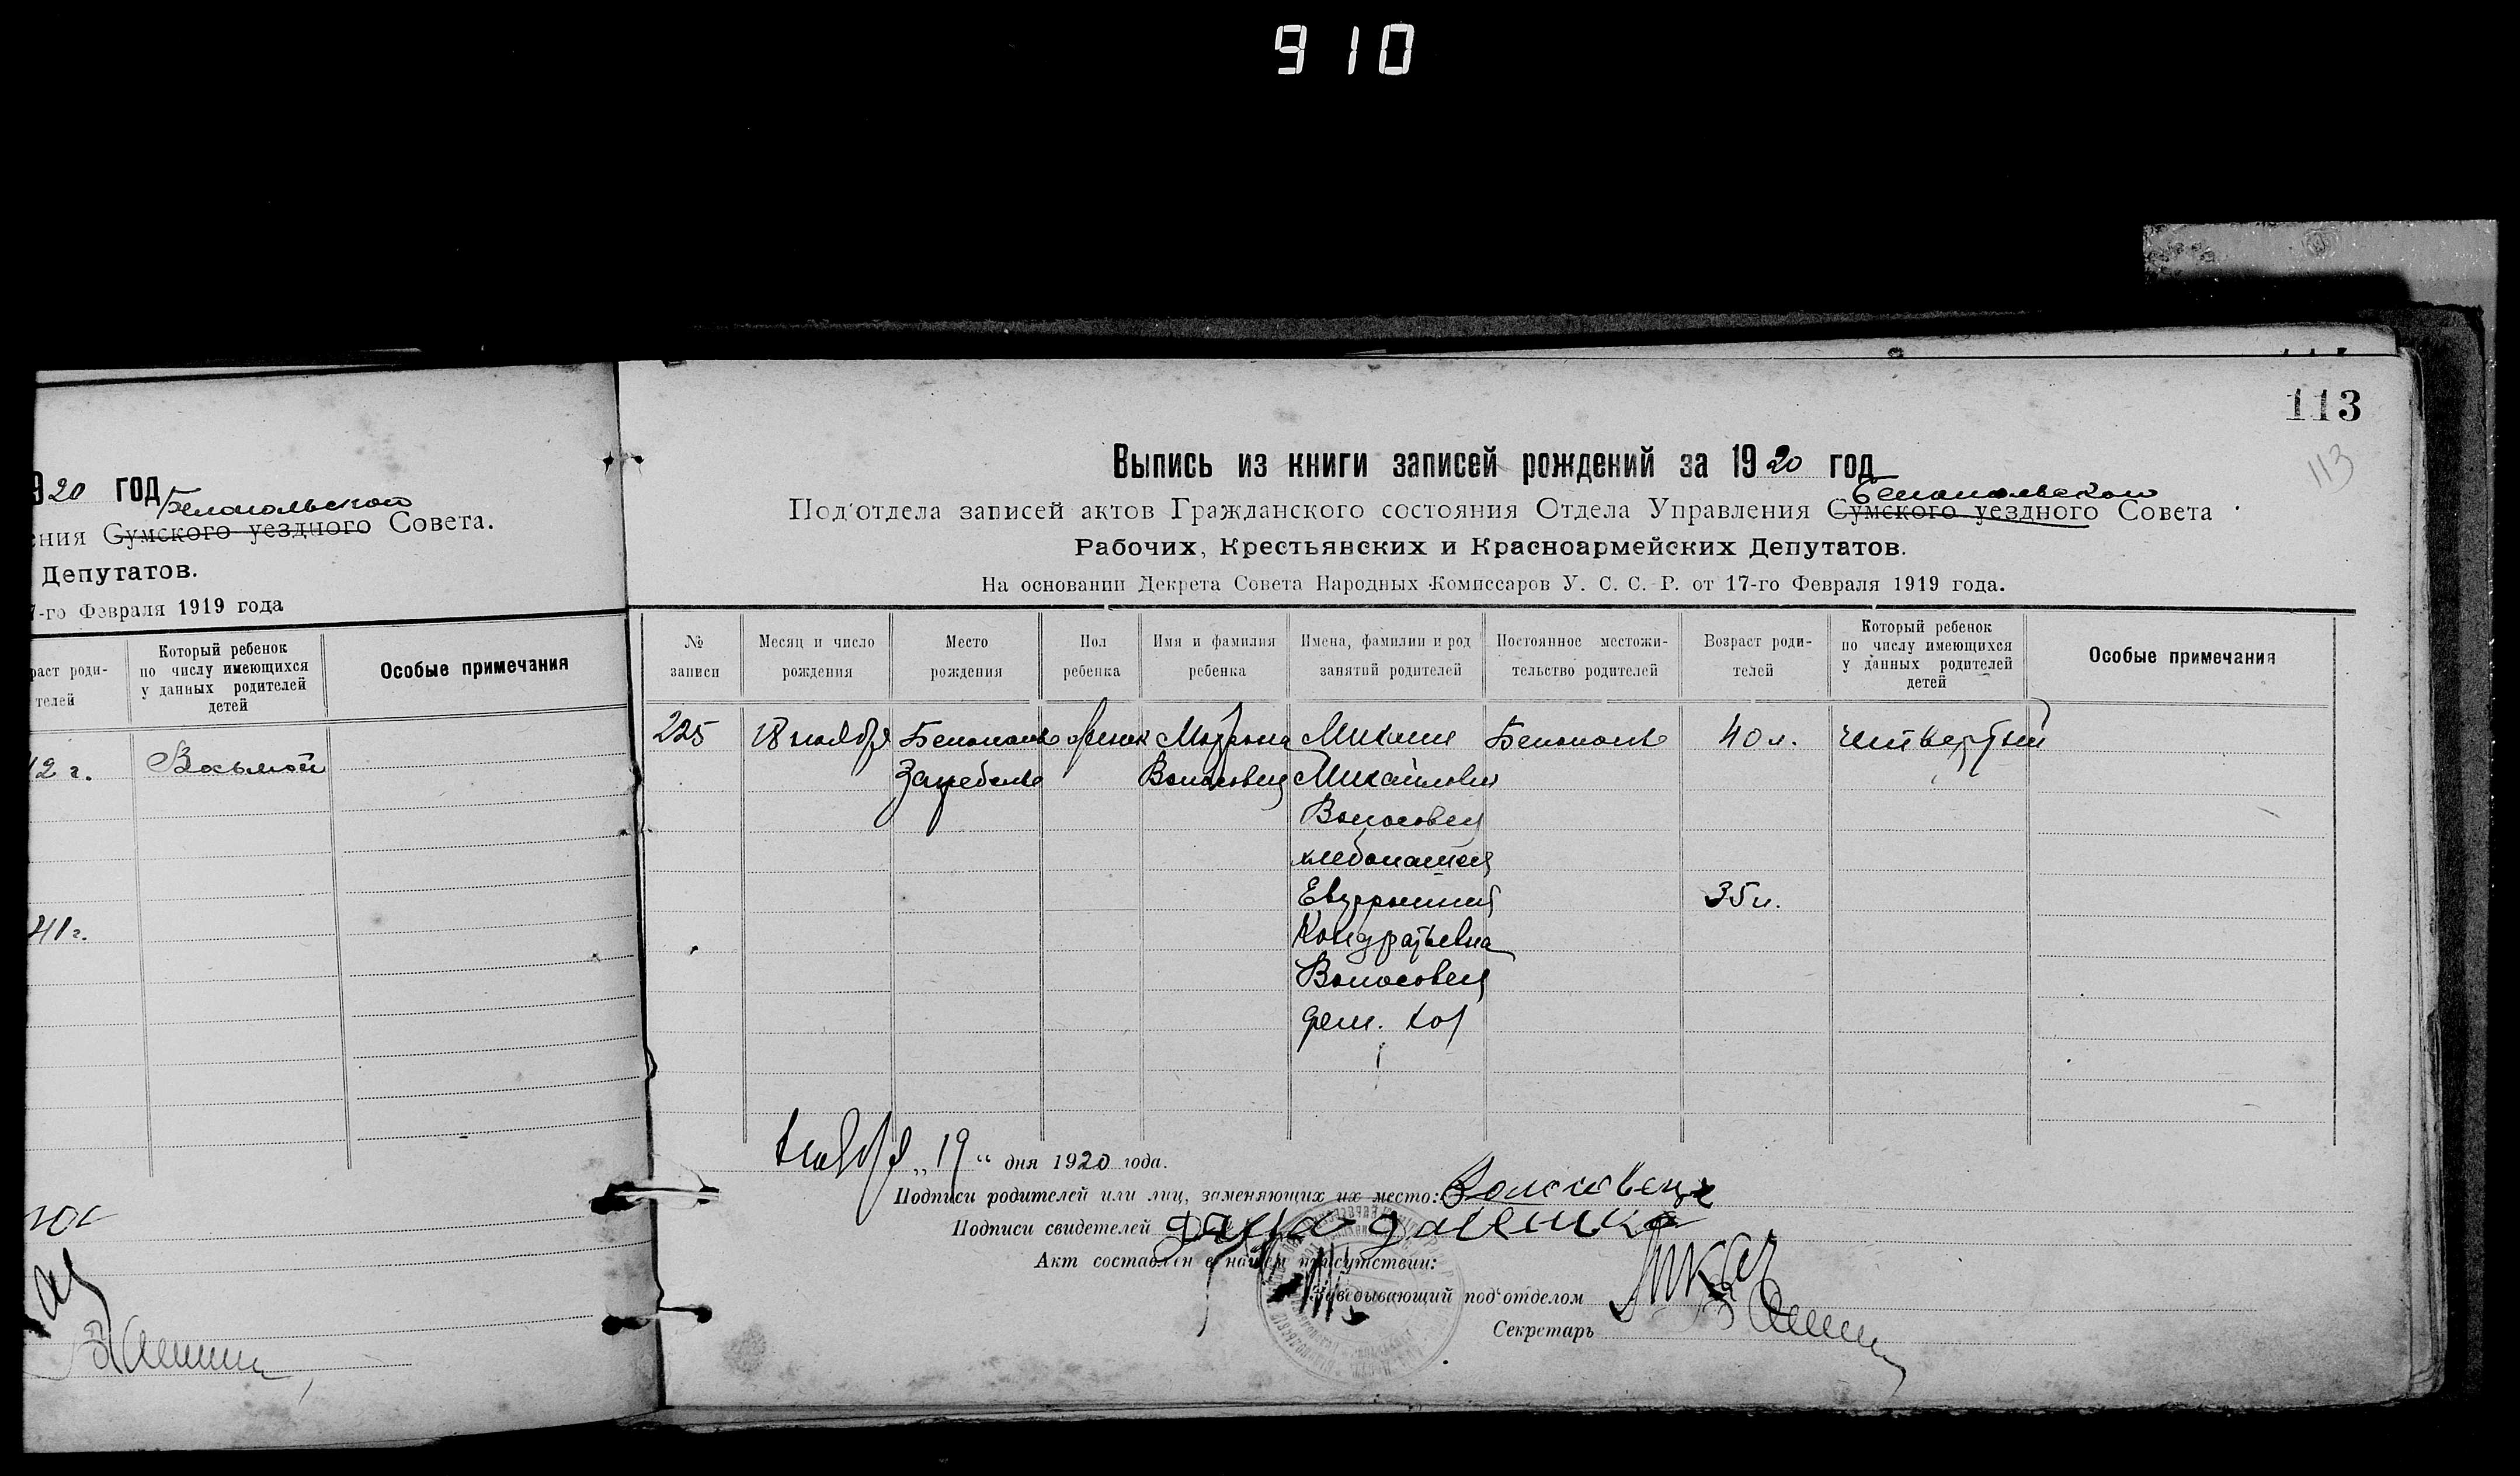 910
113
113
920 год
Белопольской
ения Сумского уездного Совета.
Депутатов.
7-го Февраля 1919 года
раст роди-
телей
Который ребенок
по числу имеющихся
у данных родителей
детей
Особые примечания
42 г.
Восьмой
41 г.
Выпись из книги записей рождений за 1920 год
Белопольского
Под'отдела записей актов Гражданского состояния Отдела Управления Сумского уездного Совета
Рабочих, Крестьянских и Красноармейских Депутатов.
На основании Декрета Совета Народных Комиссаров У. С. С. Р. от 17-го Февраля 1919 года.
№
записи
Месяц и число
рождения
Место
рождения
Пол
ребенка
Имя и фамилия
ребенка
Имена, фамилии и род
занятий родителей
Постоянное местожи-
тельство родителей
Возраст роди-
телей
Который ребенок
по числу имеющихся
у данных родителей
детей
Особые примечания
225
18 ноября
Белополье
женск
Матрона
Михаил
Белополье
40 л.
четвертый
Волосовец
Михайлович
Волосовец
хлебопашец
35 л.
Кондратьевна
Волосовец
дом. хоз
Ноября „19“ дня 1920 года.
Подписи родителей или лиц, заменяющих их место: Волосовець
Подписи свидетелей
Акт составлен в нашем присутствии:
Заведывающий под'отделом
Секретарь